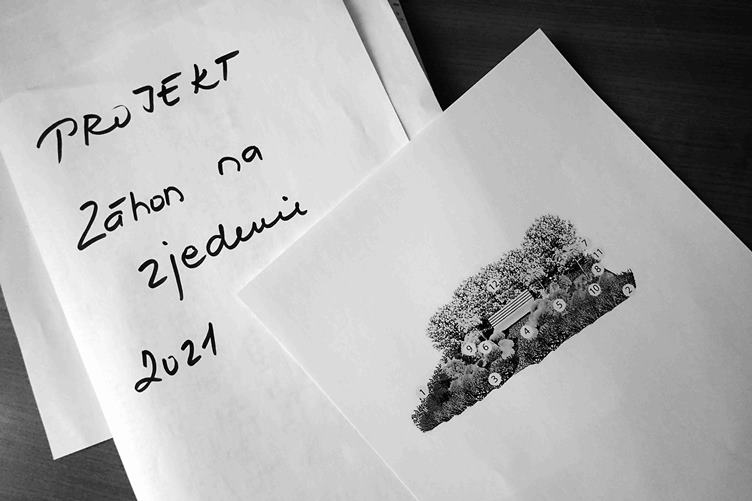 PROJEKT
Záhon na
zjedenie
2021
7
11
12
8
2
10
5
4
9
6
3
1